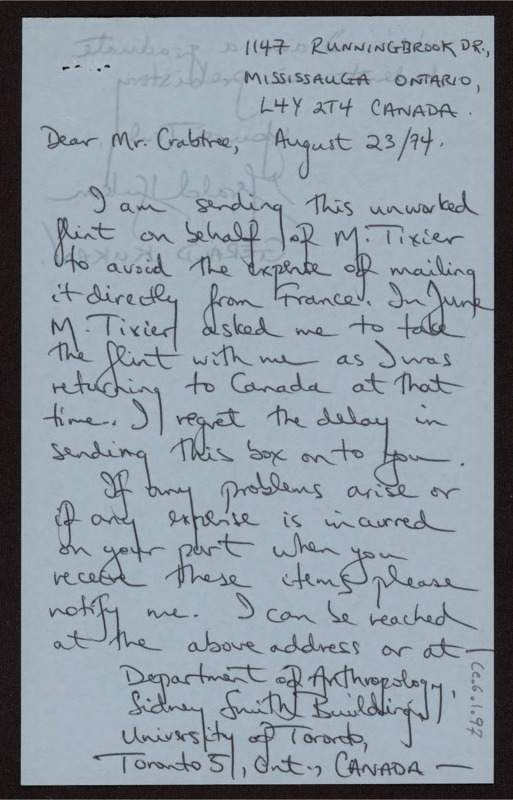 1147 RUNNINGBROOK DR.,
MISSISSAUGA ONTARIO,
L4Y 2T4 CANADA.
Dear Mr. Crabtree, August 23/74.
I am sending this unworked
flint on behalf of M. Tixier
to avoid the expense of mailing
it directly from France. In June
M. Tixier asked me to take
the flint with me as I was
returning to Canada at that
time. I regret the delay in
sending this box on to you.
If any problems arise or
if any expense is incurred
on your part when you
receive these items please
notify me. I can be reached
at the above address or at—
Department of Anthropology,
Sidney Smith Building,
University of Toronto,
Toronto 5, Ont., CANADA —
Ce.6.1.97